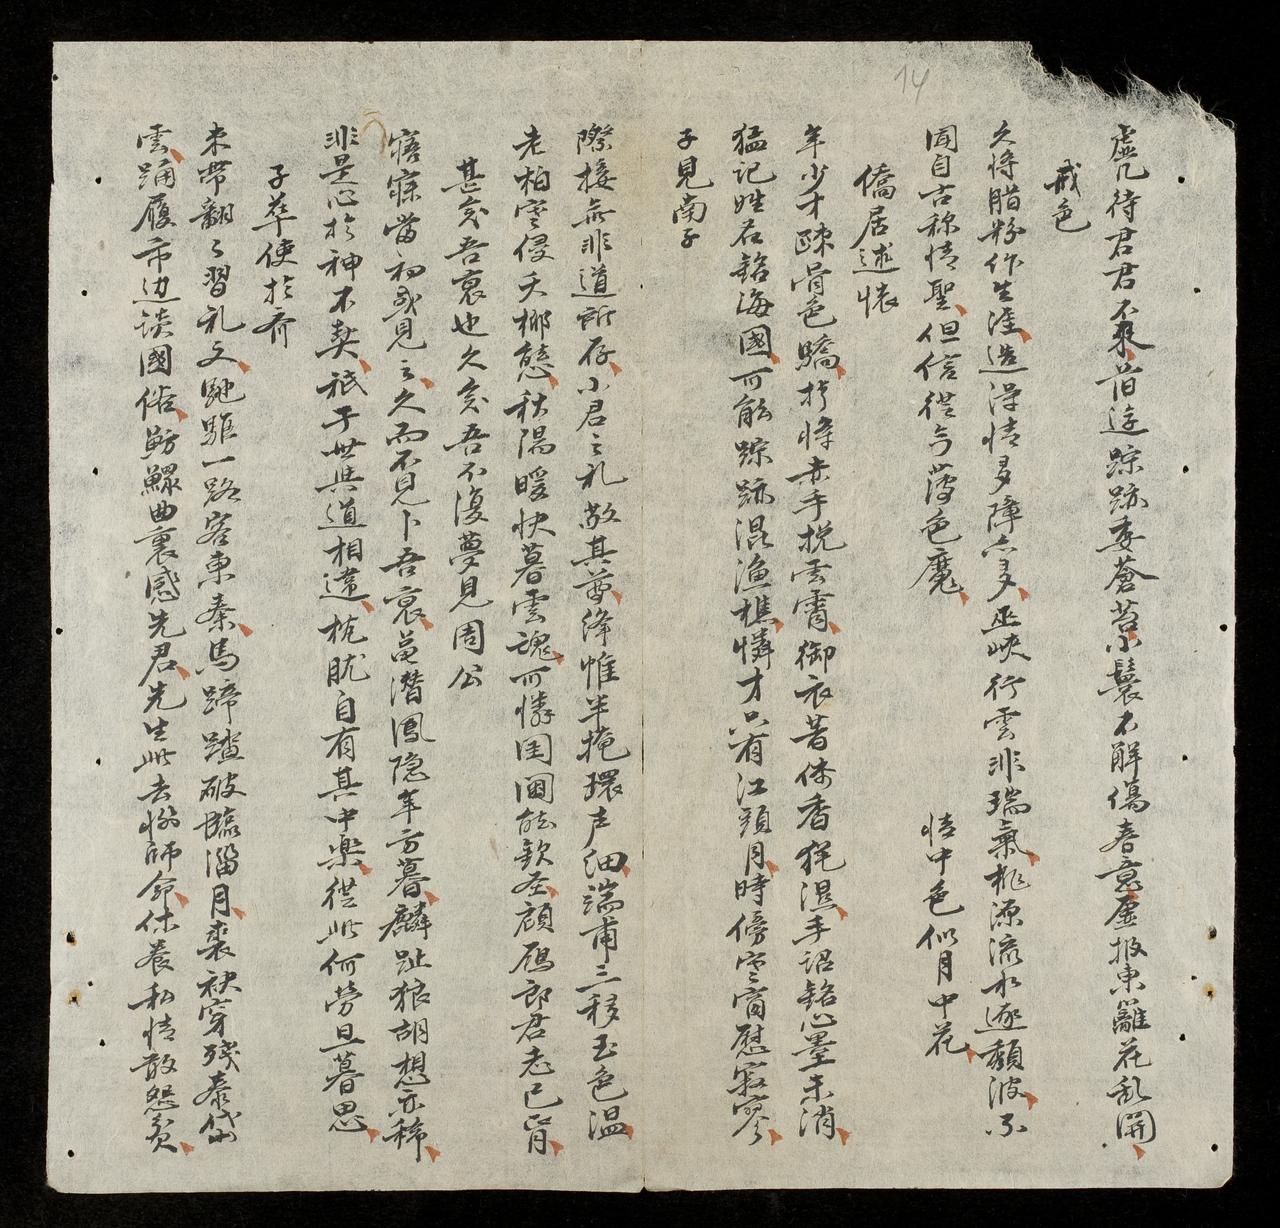 14
虛几待君君不來昔逰踪跡委蒼苔小鬟不解傷春意屋掀東籬花乱開
戒色
久将腊粉作生涯造淂情多障亦多巫峽行雲非瑞氣桃源流水逐頹波不
聞自古称情聖但信從今薄色魔
情中色似月中花
僑居述懐
年少才疎骨色驕捋将赤手挽雲霄御衣昔侍香猶濕手詔銘心墨未消
猛記姓名銘海國可能踪跡混漁樵憐才只有江頭月時傍寒窗慰寂寥
子見南子
際接無非道所存小君之礼敬其尊絳帷半掩環声细端甫三移玉色温
老柏寒侵夭柳態秋陽暖快暮雲魂可憐闺閫能欽圣顔鴈郎君志已㫺
甚矣吾衰也久矣吾不復夢見周公
寤寐當初或見之久而不見卜吾衰黾潜鳳隐年方暮麟趾狼胡想亦稀
非是心於神不契祗于世與道相違枕肱自有其中楽從此何勞旦暮思
子華使於齐
束帶翩〻習礼文馳駈一路客東秦馬蹄踏破臨淄月裘袂穿残泰岱
雲踊屨市边談國俗魴鱮曲裏感先君先生此去惟師命休養私情敢怨貧